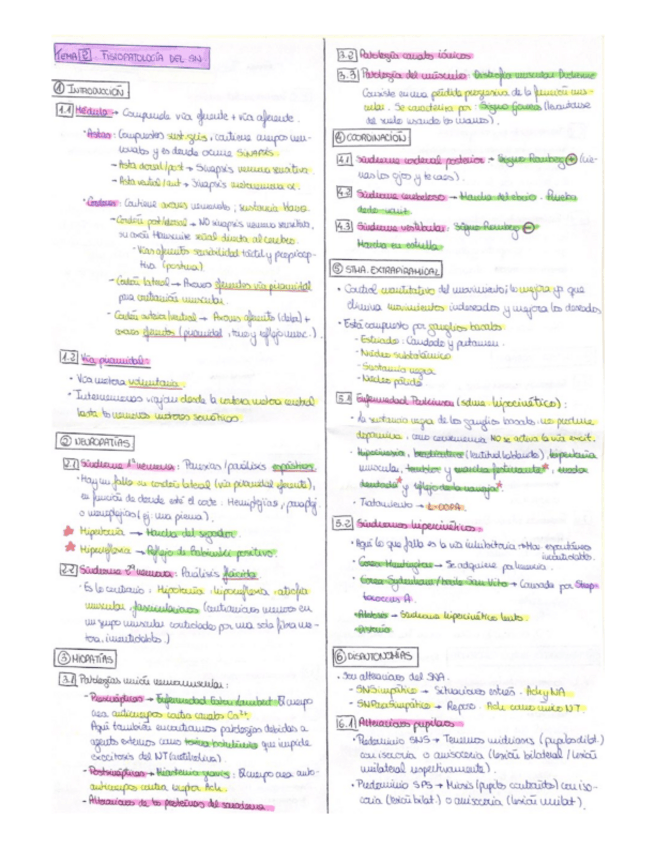 TEMA 2: FISIOPATOLOGÍA DEL SN
① INTRODUCCIÓN
1.1 Médula → Comprende vía eferente + vía aferente.
· Astas: Compuestas sust. gris, contiene cuerpos neu-
ronales y es donde ocurre SINAPSIS.
- Asta dorsal/post → Sinapsis neurona sensitiva.
- Asta ventral/ant → Sinapsis
· Cordones: Contiene axones neuronales, sustancia blanca.
- Cordón post/dorsal → NO sinapsis neurona sensitiva,
su axón transmite señal directa al cerebro.
- Vías aferentes sensibilidad táctil y propiocep-
tiva (postura)
- Cordón lateral → Axones eferentes vía piramidal
para contracción muscular.
- Cordón anterior/ventral → Axones aferentes (dolor) +
axones eferentes (piramidal, tono y reflejo musc.).
1.2 Vía piramidal:
· Vía motora voluntaria.
· Interneuronas viajan desde la corteza motora cerebral
hasta la neurona motora somática.
② NEUROPATÍAS
2.1 Síndrome 1ª neurona: Paresias/parálisis espásticas.
· Hay un fallo en cordón lateral (vía piramidal eferente),
en función de donde esté el corte. Hemiplejías, paraplej.
o monoplejías (ej: una pierna).
Hipertonía → Marcha del segador.
Hiperreflexia → Reflejo de Babinski positivo.
2.2 Síndrome 2ª neurona: Parálisis flácida
· Es lo contrario, Hipotonía, hiporreflexia, atrofia
muscular, fasciculaciones (contracciones menores en
un grupo muscular controladas por una sola fibra mo-
tora, inevitables.)
③ MIOPATÍAS
3.1 Patologías unión neuromuscular:
- Presinápticas → Enfermedad Eaton Lambert. El cuerpo
crea anticuerpos contra canales Ca²⁺.
Aquí también encontramos patologías debidas a
agentes externos como toxina botulínica que impide
exocitosis del NT
- Postsinápticas → Miastenia gravis: El cuerpo crea auto-
anticuerpos contra receptor Ach.
- Alteraciones de las proteínas del sarcolema
3.2 Patología canales iónicos
3.3 Patología del músculo: Distrofia muscular Duchenne
Consiste en una pérdida progresiva de la función mus-
cular. Se caracteriza por: Signo Gowers (levantarse
del suelo usando las manos).
④ COORDINACIÓN
4.1 Síndrome cordonal posterior: - Signo Romberg ⊕ (cie-
rras los ojos y te caes).
4.2 Síndrome cerebeloso → Marcha del ebrio. Prueba
dedo nariz.
4.3 Síndrome vestibular: Signo Romberg ⊖
Marcha en estrella.
⑤ STMA. EXTRAPIRAMIDAL
· Control cuantitativo del movimiento; lo mejora ya que
elimina movimientos indeseados y mejora los deseados
· Está compuesto por ganglios basales
- Estriado: Caudado y putamen.
- Núcleo subtalámico
- Sustancia negra
- Núcleo pálido
5.1 Enfermedad Parkinson (sdme. hipocinético):
· La sustancia negra de los ganglios basales no produce
dopamina, como consecuencia NO se activa la vía excit.
· Hipocinesia, bradicinesia (lentitud hablando), hipertonía
muscular, temblor y marcha festinante, rueda
dentada y reflejo de la navaja.
· Tratamiento → L-DOPA.
5.2 Síndromes hipercinéticos:
· Aquí lo que falla es la vía inhibitoria → Mov. espontáneos
incontrolables.
- Corea Huntington → Se adquiere por herencia.
- Corea Sydenham/baile San Vito → Causada por Strep-
tococcus A.
- Atetosis → Síndrome hipercinético lento.
- Distonía
⑥ DISAUTONOMÍAS
· Son alteraciones del SNA.
- SNSimpático → Situaciones estrés. Ach y NA
- SNParasimpático → Reposo. Ach como único NT.
6.1 Alteraciones pupilares
· Predominio SNS → Tenemos midriasis (pupilas dilat.)
con isocoria o anisocoria (lesión bilateral / lesión
unilateral respectivamente).
· Predominio SPS → Miosis (pupilas contraídas) con iso-
coria (lesión bilat.) o anisocoria (lesión unilat.).